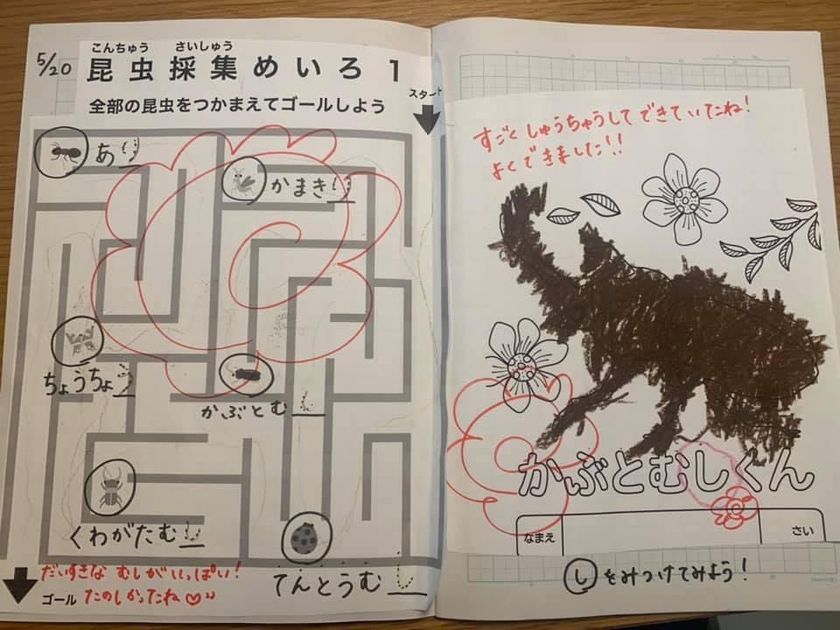 5/20
こんちゅう さいしゅう
昆虫採集めいろ 1
全部の昆虫をつかまえてゴールしよう
スタート
あり
かまきり
ちょうちょう
かぶとむし
くわがたむし
てんとうむし
だいすきな むしがいっぱい!
ゴール たのしかったね♡
すごくしゅうちゅうしてできていたね!
よくできました!!
かぶとむしくん
なまえ さい
しをみつけてみよう!